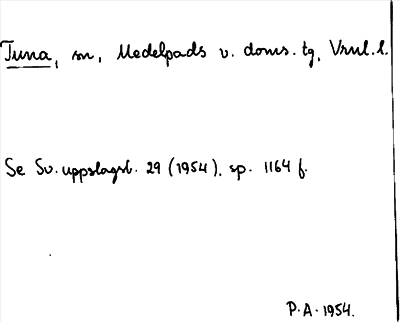 Tuna, sn, Medelpads v. doms. tg, Vrnl. l.
Se Sv. uppslagsb. 29 (1954), sp. 1164 f.
P.A. 1954.